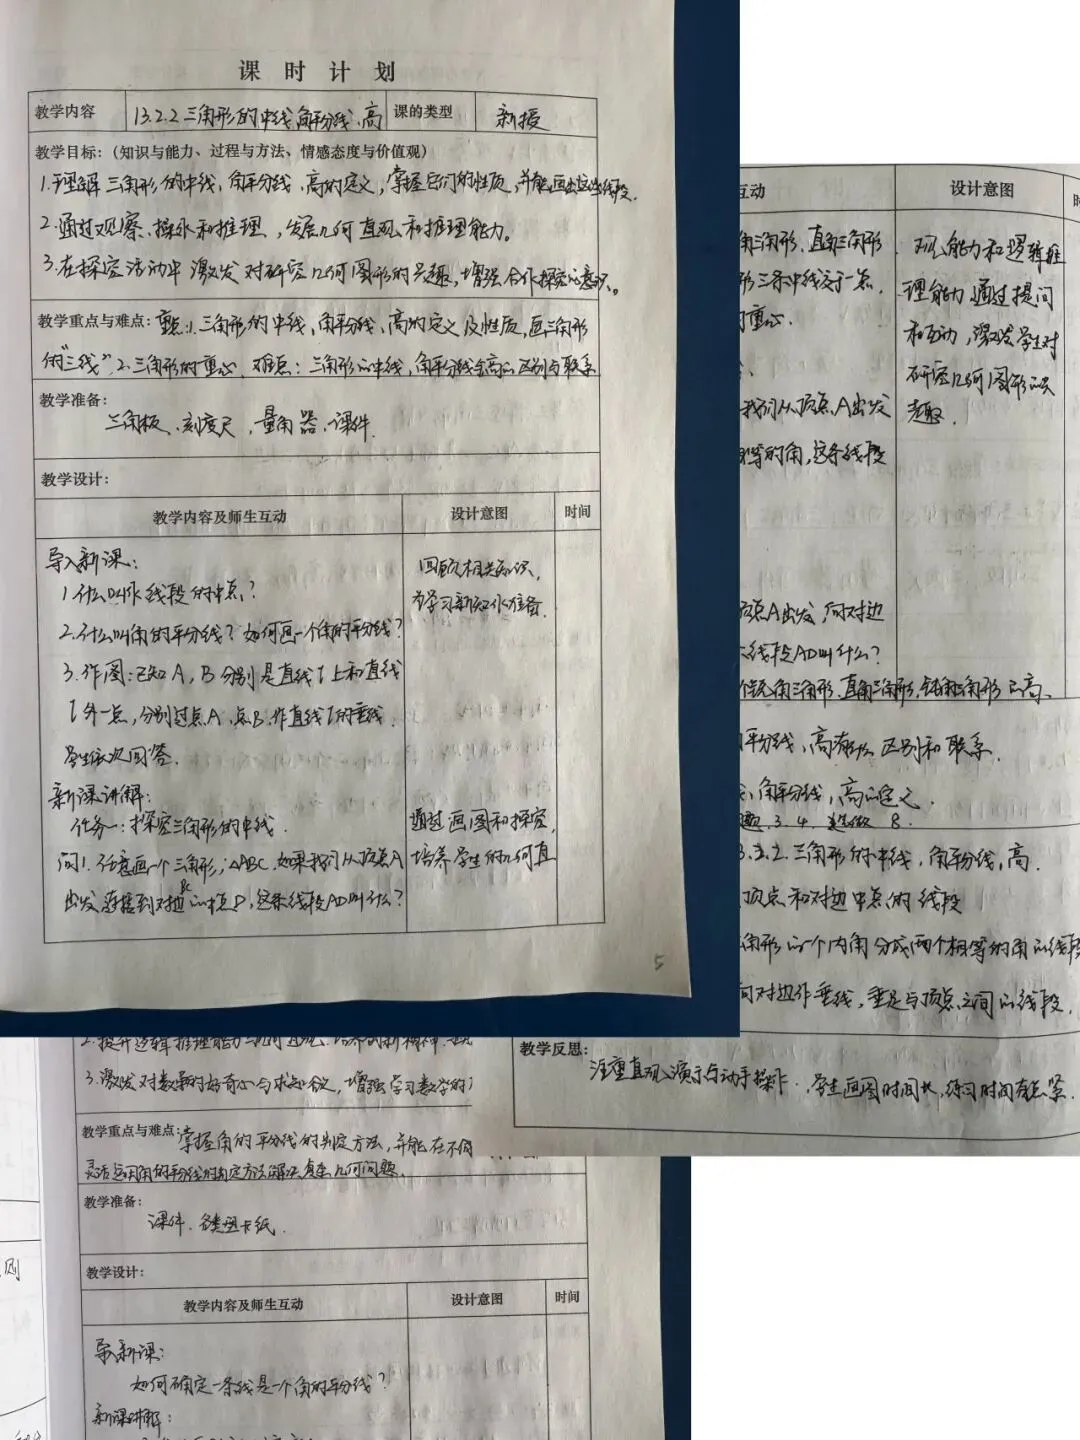 课时计划
教学内容 13.2.2 三角形的中线、角平分线、高 课的类型 新授
教学目标：（知识与能力、过程与方法、情感态度与价值观）
1.理解三角形的中线、角平分线、高的定义，掌握它们的性质，并能画出这些线段.
2.通过观察、操作和推理，发展几何直观和推理能力。
3.在探究活动中激发对研究几何图形的兴趣，增强合作探究的意识。
教学重点与难点：重点：1.三角形的中线，角平分线、高的定义及性质，画三角形
的"三线" 2.三角形的重心. 难点：三角形的中线，角平分线与高的区别与联系
教学准备：
三角板、刻度尺，量角器、课件.
教学设计：
教学内容及师生互动 设计意图 时间
导入新课：
1.什么叫作线段的中点？
2.什么叫角的平分线？如何画一个角的平分线？
3.作图：已知A，B分别是直线l上和直线
l外一点，分别过点A、点B作直线l的垂线.
学生依次回答.
回顾相关知识，
为学习新知作准备.
新课讲解：
任务一：探究三角形的中线.
问1.任意画一个三角形，△ABC.如果我们从顶点A
出发连接到对边BC的中点D，这条线段AD叫什么？
通过画图和探究，
培养学生的几何直
5
互动 设计意图 时
角三角形、直角三角形
形三条中线交于一点.
的重心.
我们从顶点A出发
相等的角，这条线段
观能力和逻辑推
理能力 通过提问
和互动，激发学生对
研究几何图形的兴
趣.
顶点A出发，向对边
线段AD叫什么？
个锐角三角形、直角三角形、钝角三角形的高、
平分线，高有什么区别和联系.
角平分线，高的定义.
题 3. 4. 选做 8.
3.2.2.三角形的中线，角平分线，高.
顶点和对边中点的线段
角形的一个内角分成两个相等的角的线段
向对边作垂线，垂足与顶点之间的线段.
教学反思：
注重直观演示与动手操作. 学生画图时间长，练习时间有点紧.
3.激发对数学的好奇心与求知欲，增强学习数学的
教学重点与难点：掌握角的平分线的判定方法，并能在不同
灵活运用角的平分线的判定方法解决复杂几何问题.
教学准备：
课件.各类型卡纸.
教学设计：
教学内容及师生互动 设计意图 时间
导入新课：
如何确定一条线是一个角的平分线？
新课讲解：
则